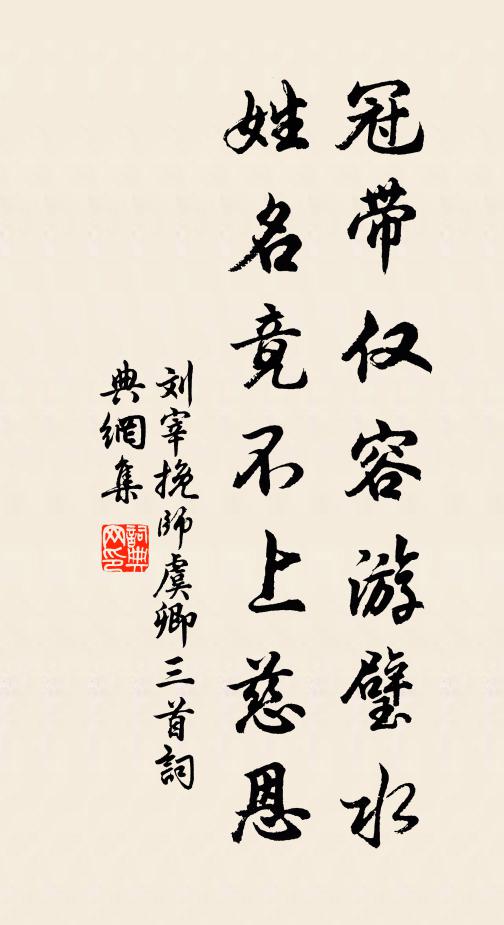 冠带仅容游璧水
姓名竟不上慈恩
刘宰挽师虞卿三首詞
典網集
詞典网印